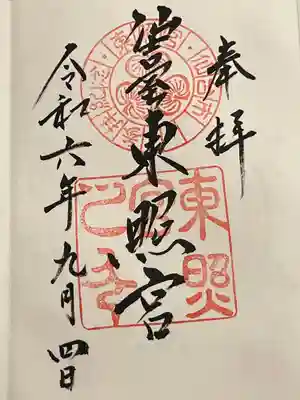 奉拝
仙臺東照宮
令和六年九月四日
東照宮